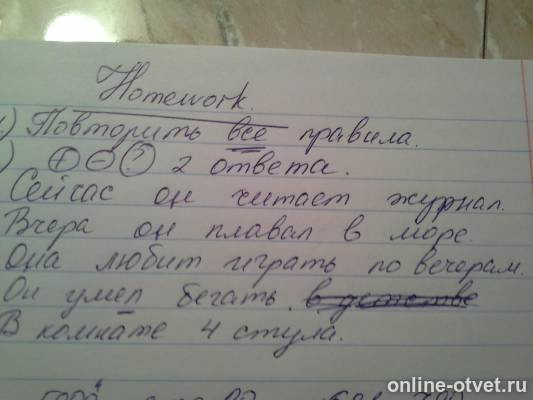 Homework.
1) Повторить все правила.
) + − ? 2 ответа.
Сейчас он читает журнал.
Вчера он плавал в море.
Она любит играть по вечерам.
Он умел бегать в детстве
В комнате 4 стула.
online-otvet.ru